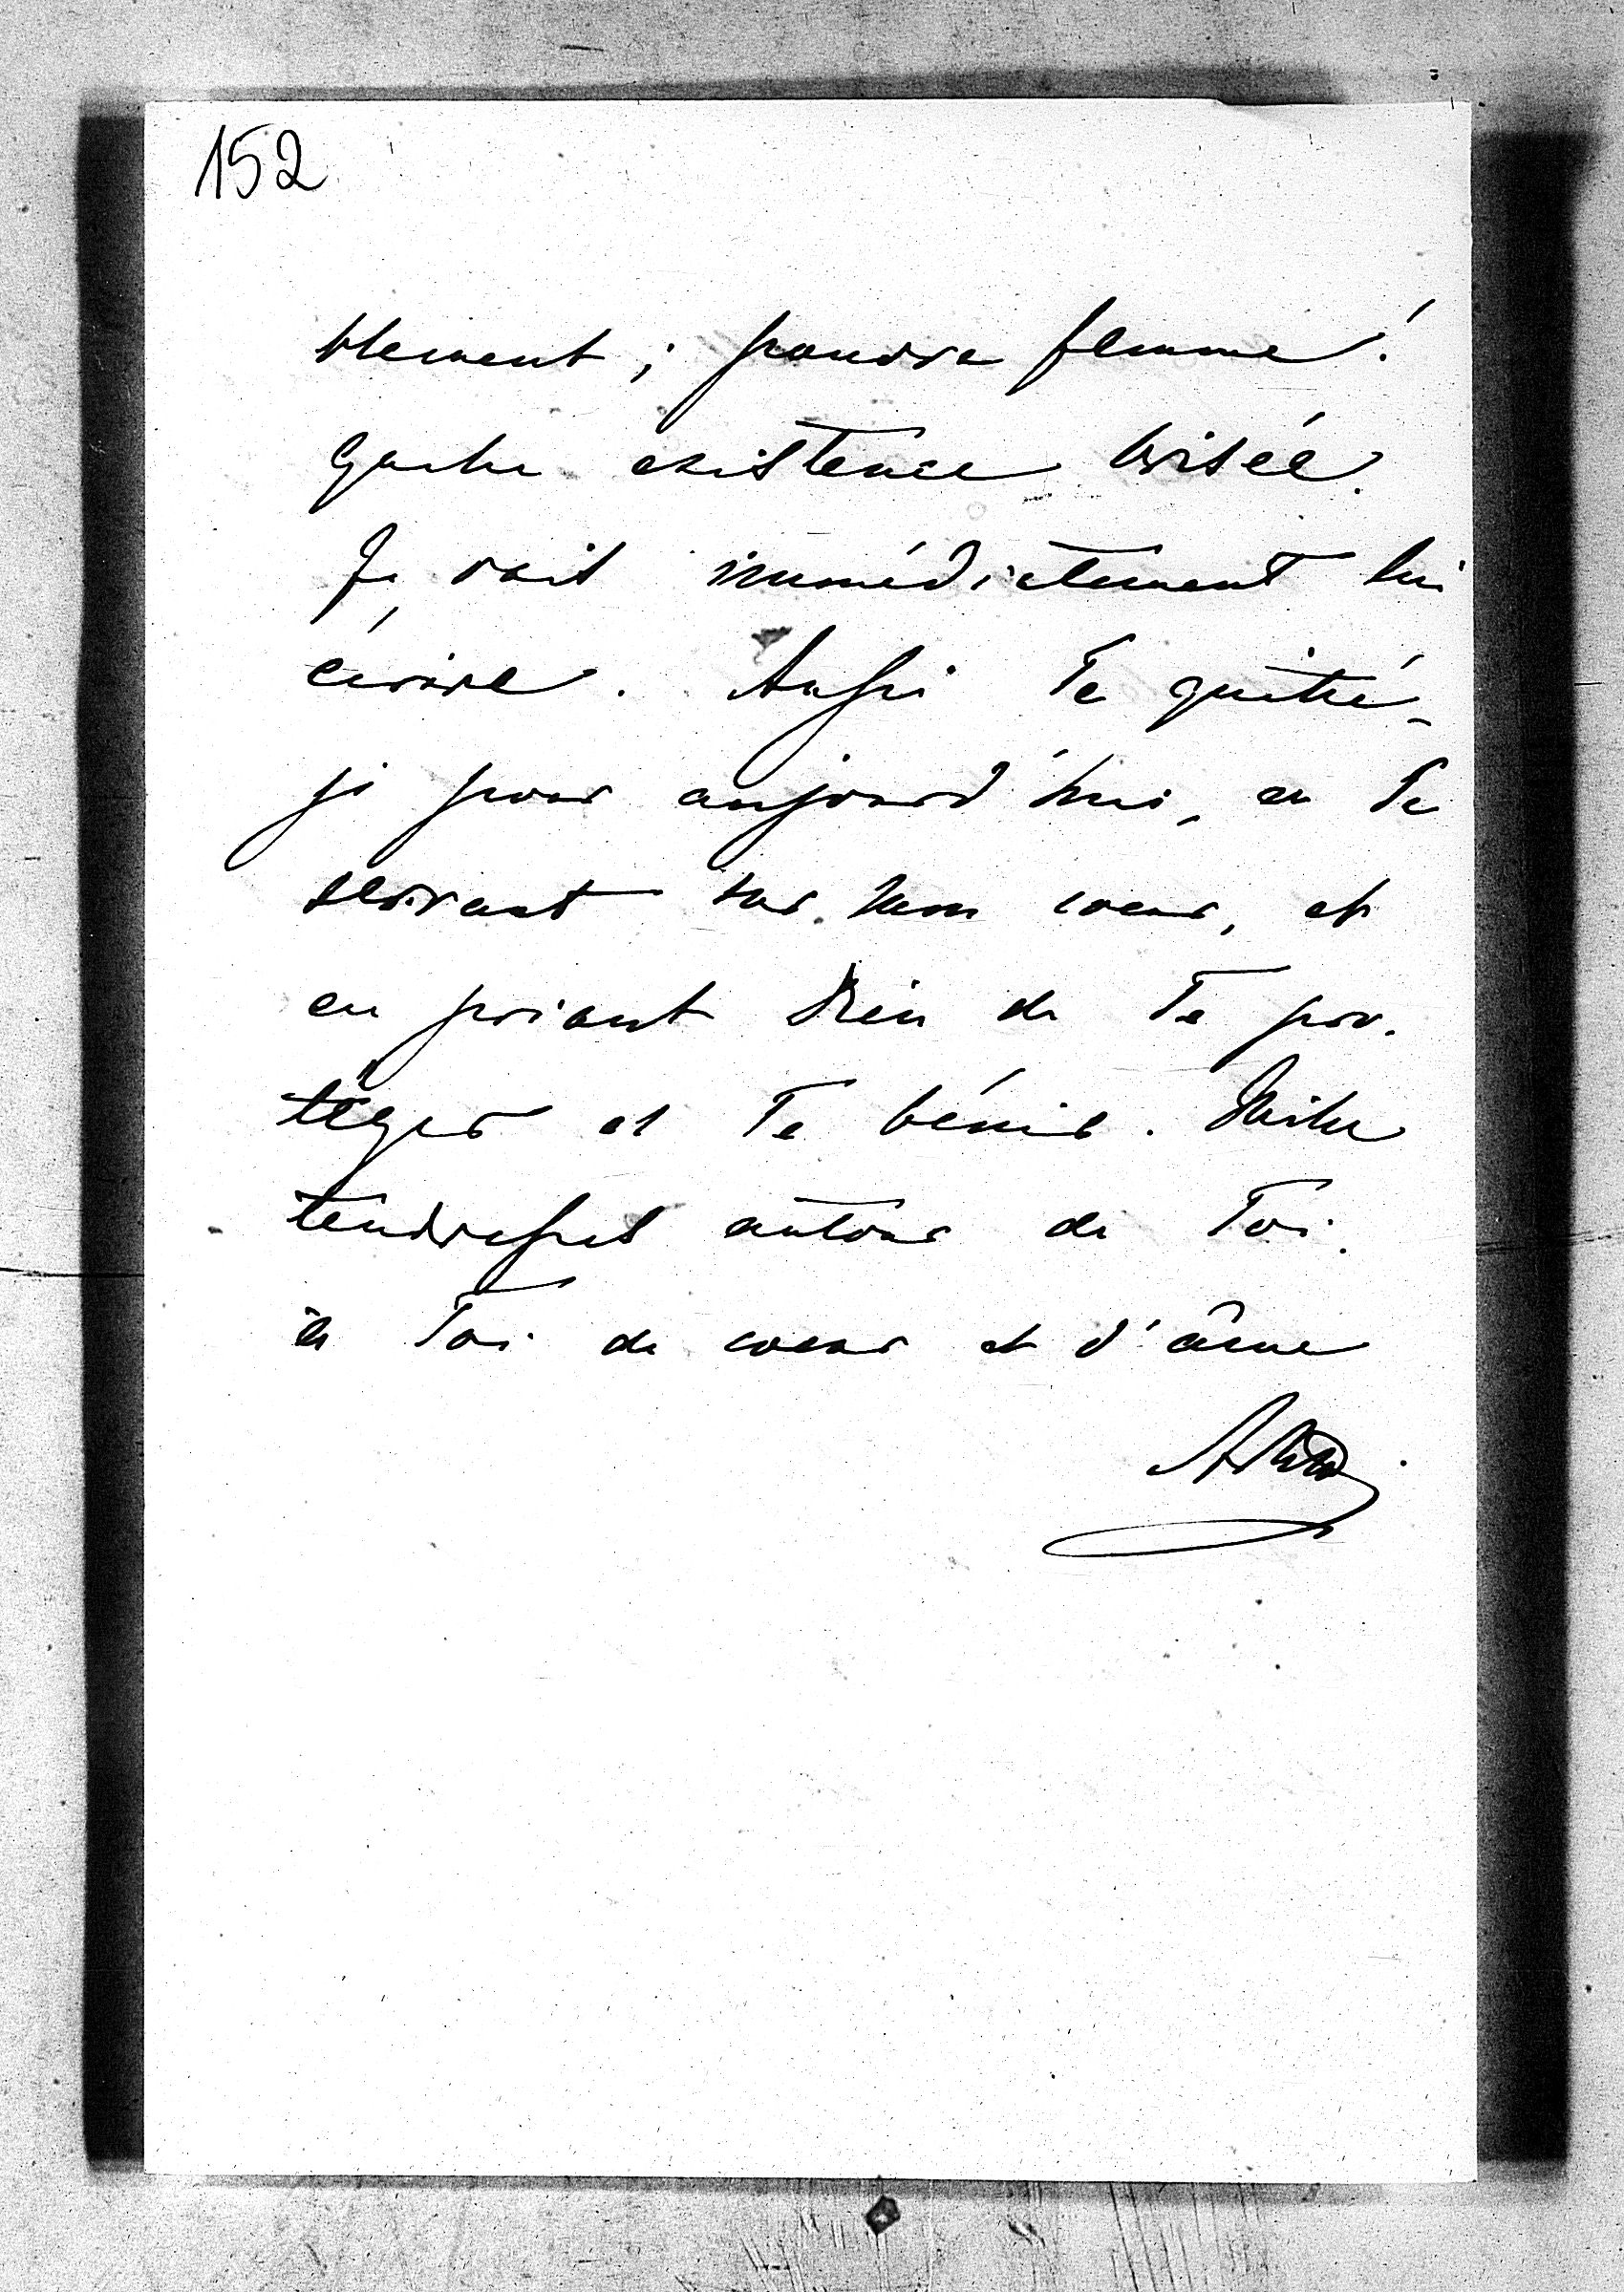 152
blement ; pauvre femme !
Quelle existence brisée.
Je vais immédiatement lui
écrire. Aussi Te quitté-
je pour aujourd'hui, en Te
serrant sur mon coeur, et
en priant Dieu de Te pro-
téger et Te bénir. Mille
tendresses autour de Toi.
à Toi de coeur et d'âme